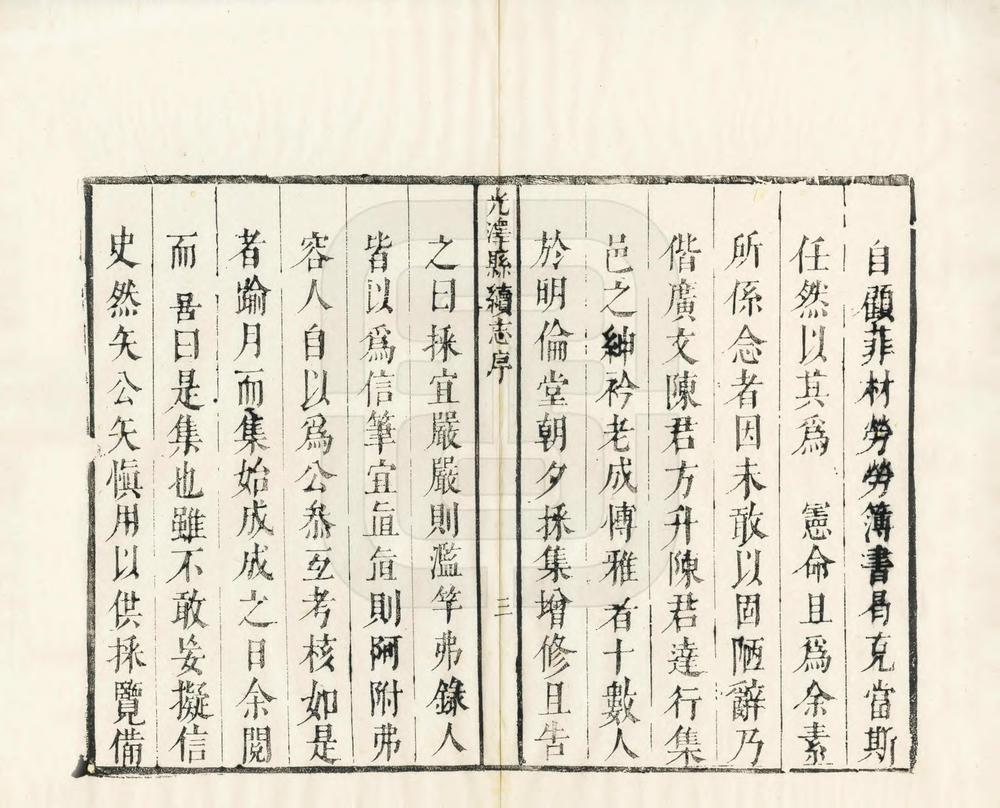 自顧菲材勞勞簿書曷克當斯
任然以其爲　憲命且爲余素
所係念者因未敢以固陋辭乃
偕廣文陳君方升陳君達行集
邑之紳衿老成博雅者十數人
於明倫堂朝夕採集增修且告
光澤縣續志序　三
之曰採宜嚴嚴則濫竽弗錄人
皆以爲信筆宜直直則阿附弗
容人自以爲公叅互考核如是
者踰月而集始成成之日余閱
而　曰是集也雖不敢妄擬信
史然矢公矢愼用以供採覽備